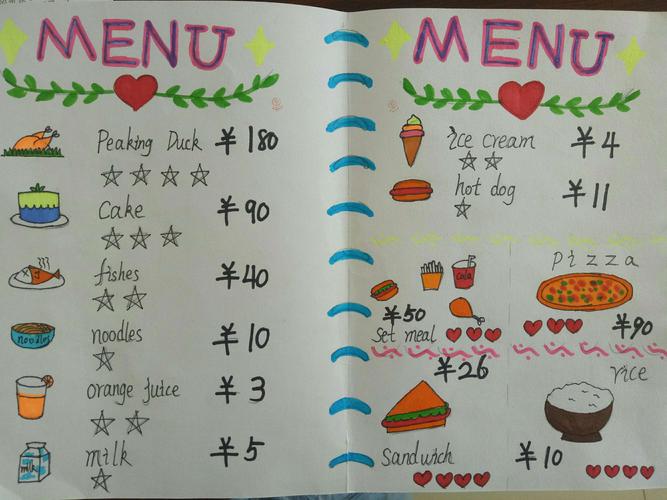 MENU
Peaking Duck ¥180
Cake ¥90
fishes ¥40
noodles
noodles ¥10
orange juice ¥3
milk
milk ¥5
MENU
ice cream ¥4
hot dog ¥11
cola
¥50
set meal
pizza
¥90
¥26
Sandwich
rice
¥10